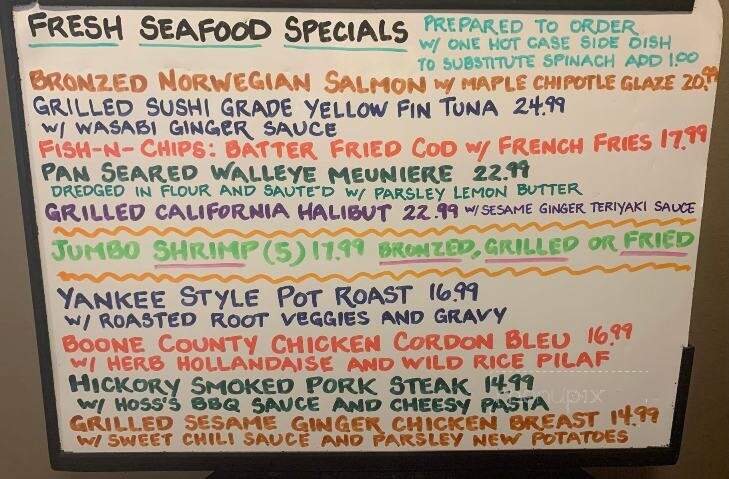 FRESH SEAFOOD SPECIALS
PREPARED TO ORDER
W/ ONE HOT CASE SIDE DISH
TO SUBSTITUTE SPINACH ADD 1.00
BRONZED NORWEGIAN SALMON W/ MAPLE CHIPOTLE GLAZE 20.99
GRILLED SUSHI GRADE YELLOW FIN TUNA 24.99
W/ WASABI GINGER SAUCE
FISH-N-CHIPS: BATTER FRIED COD W/ FRENCH FRIES 17.99
PAN SEARED WALLEYE MEUNIERE 22.99
DREDGED IN FLOUR AND SAUTE'D W/ PARSLEY LEMON BUTTER
GRILLED CALIFORNIA HALIBUT 22.99 W/ SESAME GINGER TERIYAKI SAUCE
JUMBO SHRIMP (5) 17.99 BRONZED, GRILLED OR FRIED
YANKEE STYLE POT ROAST 16.99
W/ ROASTED ROOT VEGGIES AND GRAVY
BOONE COUNTY CHICKEN CORDON BLEU 16.99
W/ HERB HOLLANDAISE AND WILD RICE PILAF
HICKORY SMOKED PORK STEAK 14.99
W/ HOSS'S BBQ SAUCE AND CHEESY PASTA
GRILLED SESAME GINGER CHICKEN BREAST 14.99
W/ SWEET CHILI SAUCE AND PARSLEY NEW POTATOES